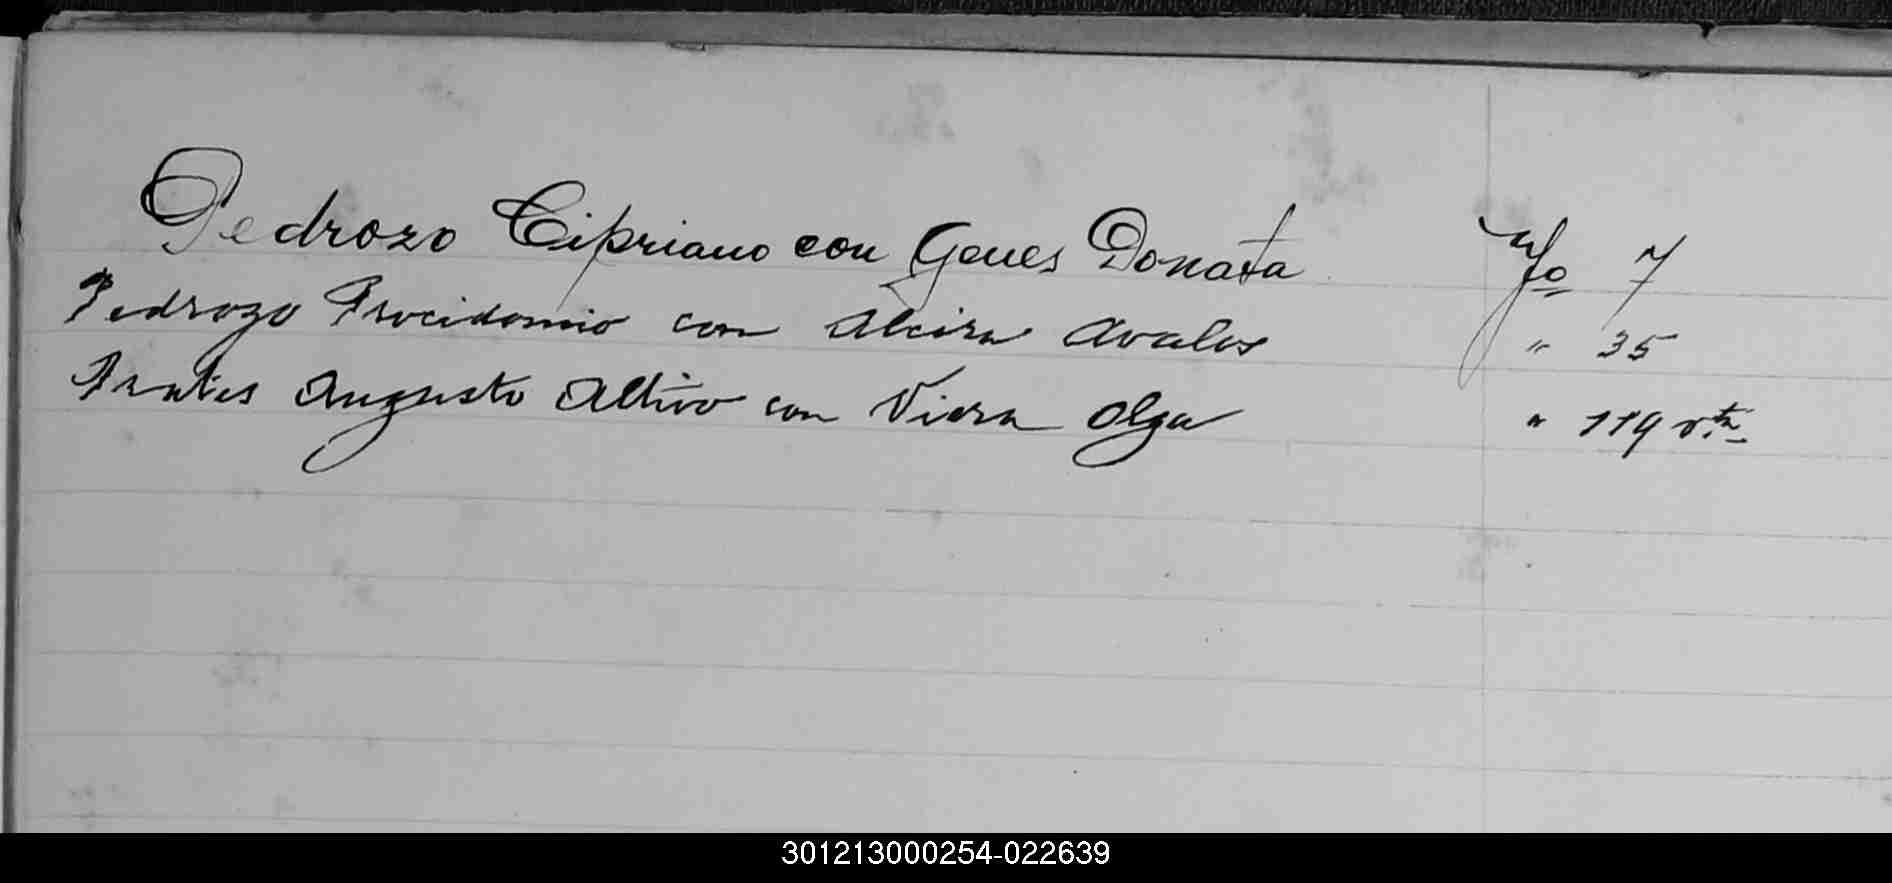 Pedrozo Cipriano con Genes Donata Fo 7
Pedrozo Procidomio con Alcira Avalos " 35
Prates Augusto Altivo con Viera Olga " 119 vta
301213000254-022639